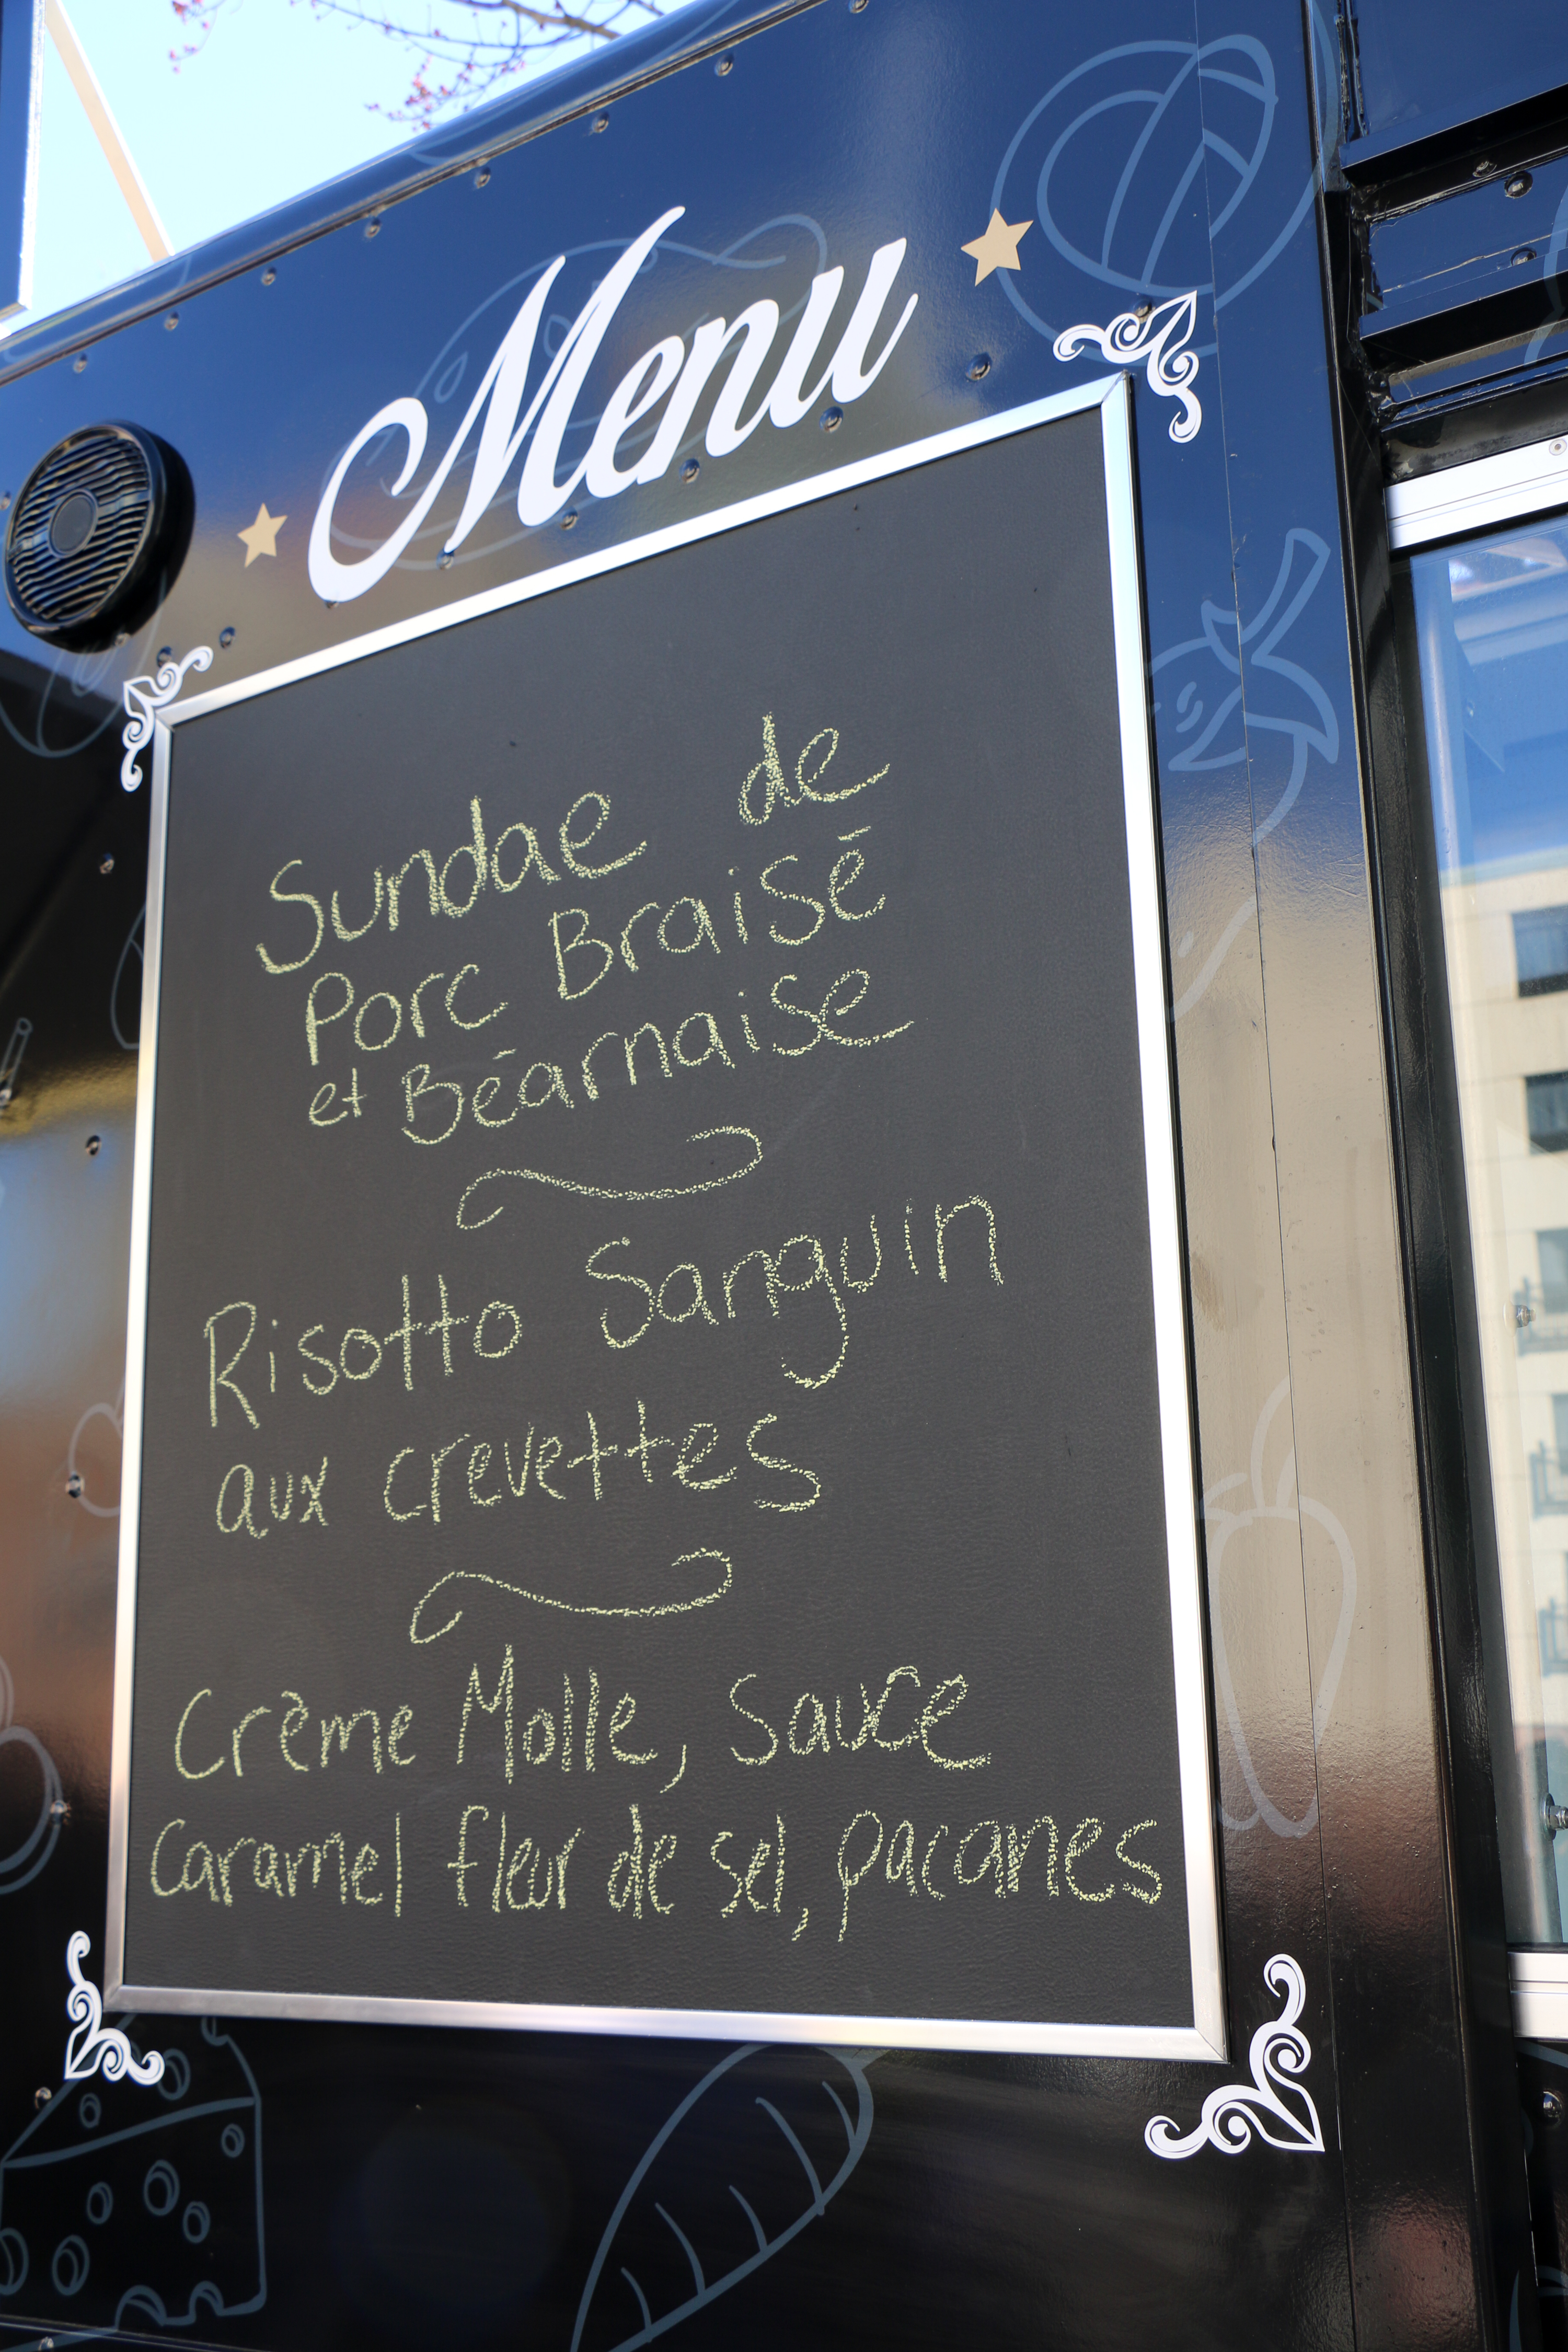 Menu
Sundae de
Porc Braisé
et Béarnaise
Risotto Sanguin
aux crevettes
Crème Molle, Sauce
Caramel fleur de sel, pacanes